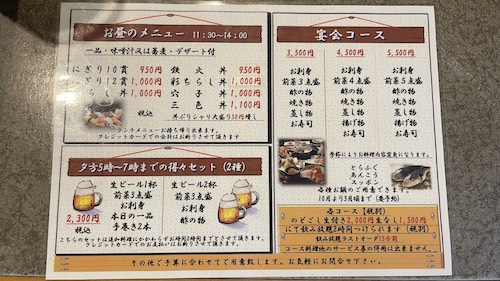 お昼のメニュー 11:30~14:00
一品・味噌汁又は蕎麦・デザート付
にぎり10貫 950円 鉄火丼 950円
にぎり12貫 1,000円 彩ちらし丼 1,000円
ちらし丼 1,000円 穴子丼 1,000円
三色丼 1,100円
税込 丼ぶりシャリ大盛り50円増し
ランチメニューお持ち帰り出来ます。
クレジットカードでの会計はお断りさせて頂きます
夕方5時~7時までの得々セット(2種)
生ビール1杯
前菜3点盛
お刺身
本日の一品
手巻き2本
生ビール2杯
前菜3点盛
お刺身
酢の物
2,300円
税込
こちらのセットは追加料理にかかわらずお時間2時間までとさせて頂きます。
クレジットカードでのお支払いはお断りさせて頂きます。
宴会コース
3,500円
お刺身
前菜3点盛
酢の物
焼き物
蒸し物
お寿司
4,500円
お刺身
前菜4点盛
酢の物
焼き物
蒸し物
揚げ物
お寿司
5,500円
お刺身
前菜5点盛
酢の物
焼き物
蒸し物
揚げ物
お寿司
季節によりお料理内容変更になります。
とらふぐ
あんこう
スッポン
各種お鍋のご用意できます。
10月より3月頃まで(要予約)
各コース【税別】
のどごし生付き2,000円生なし1,500円
にて飲み放題2時間つけられます(税別)
飲み放題ラストオーダー15分前
コース料理他のサービス券の併用は出来ません。
その他ご予算に合わせてご用意致します。お気軽にお問合せ下さい。